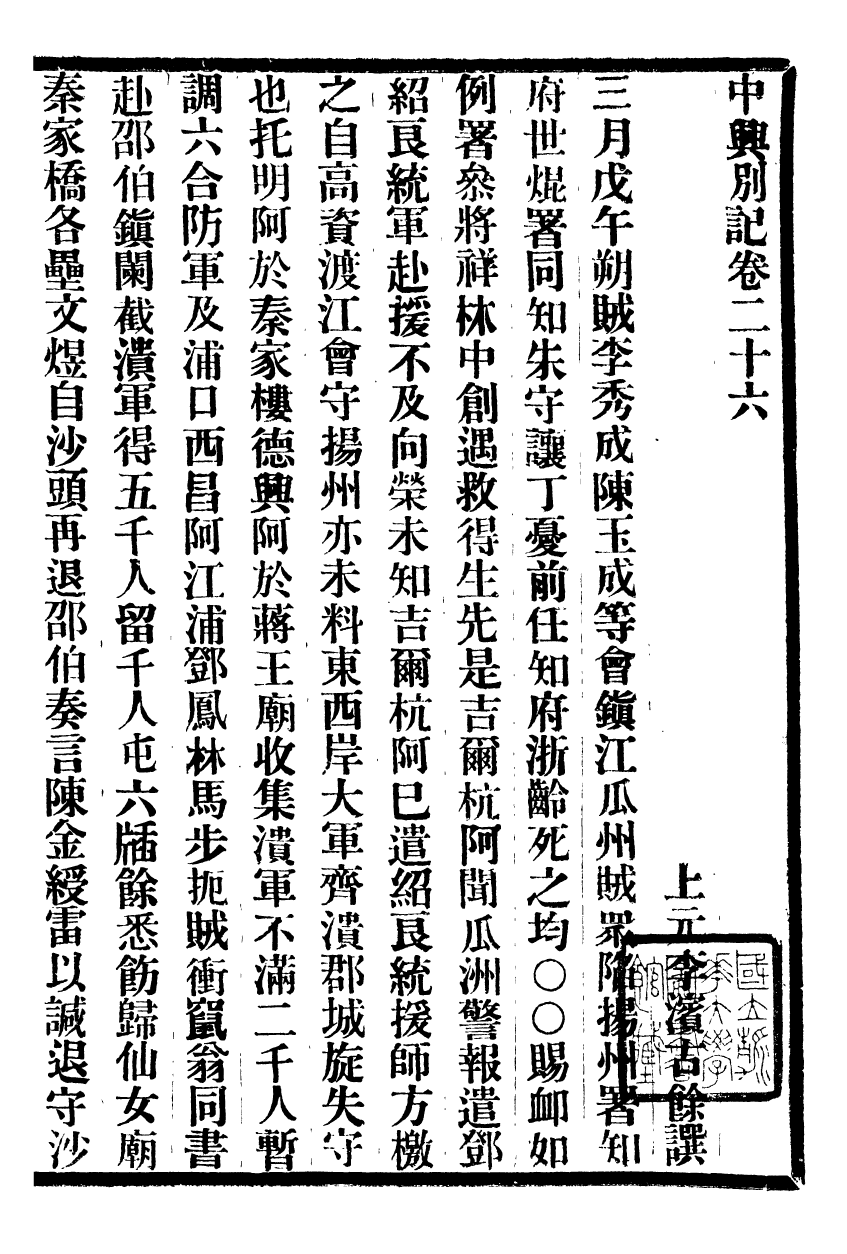 中興別記卷二十六
上元李濱古餘譔
三月戊午朔賊李秀成陳玉成等會鎭江瓜州賊眾陷揚州署知
府世焜署同知朱守讓丁憂前任知府浙齡死之均○○賜卹如
例署叅將祥林中創遇救得生先是吉爾杭阿聞瓜洲警報遣鄧
紹良統軍赴援不及向榮未知吉爾杭阿已遣紹良統援師方檄
之自高資渡江會守揚州亦未料東西岸大軍齊潰郡城旋失守
也托明阿於秦家樓德興阿於蔣王廟收集潰軍不滿二千人暫
調六合防軍及浦口西昌阿江浦鄧鳳林馬步扼賊衝竄翁同書
赴邵伯鎭闌截潰軍得五千人留千人屯六牐餘悉飭歸仙女廟
秦家橋各壘文煜自沙頭再退邵伯奏言陳金綬雷以諴退守沙
國立
大學